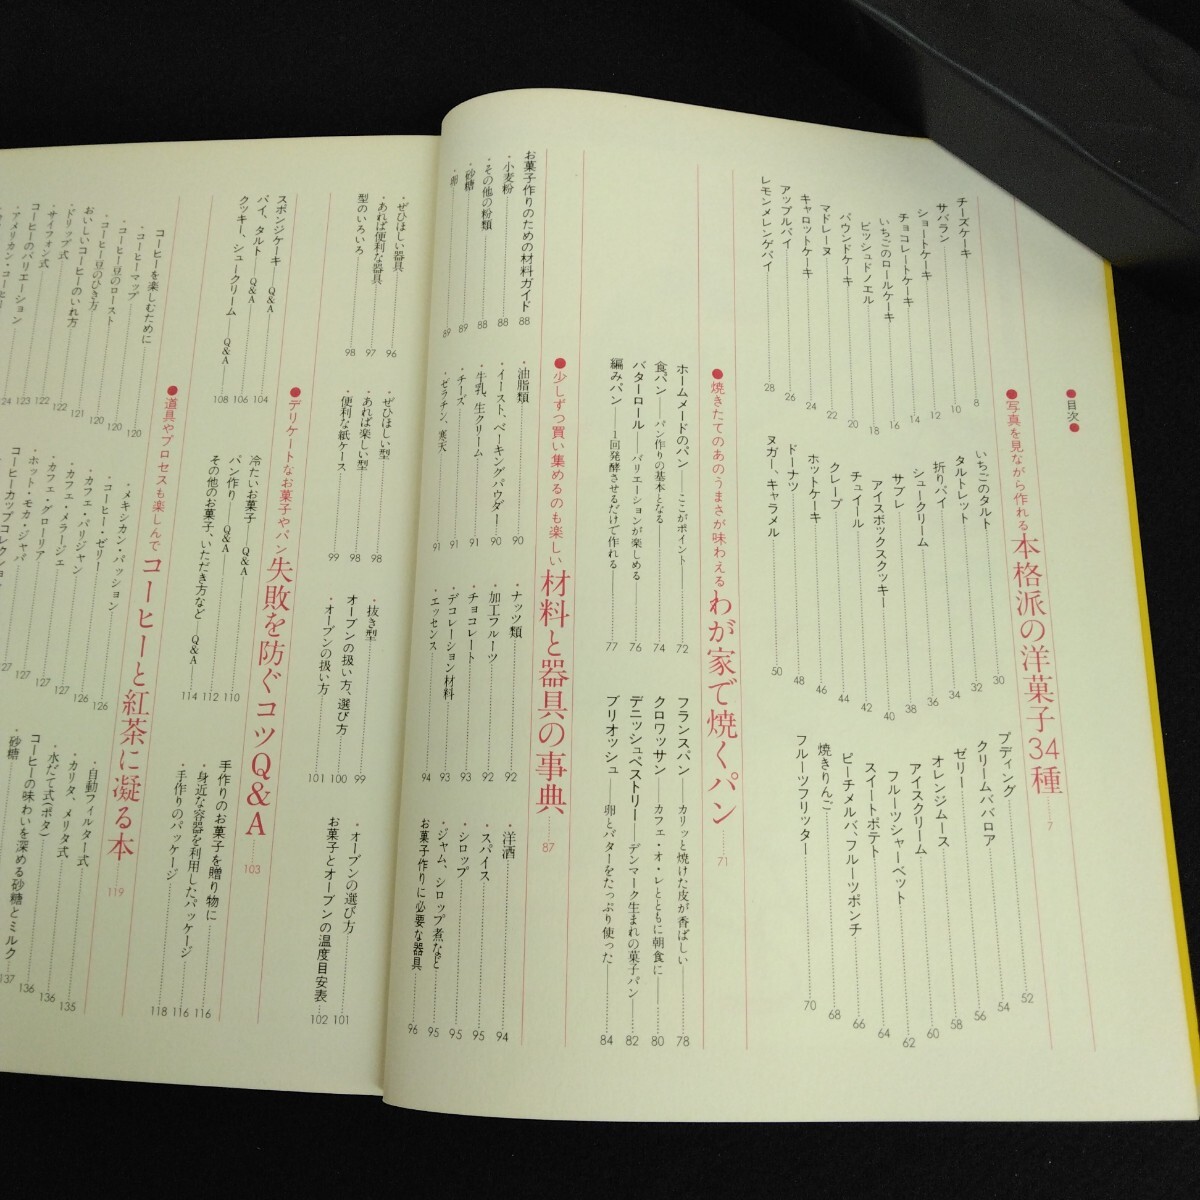 ●目次●
●写真を見ながら作れる本格派の洋菓子34種 7
チーズケーキ 8
サバラン 10
ショートケーキ 12
チョコレートケーキ 14
いちごのロールケーキ 16
ビッシュドノエル 18
パウンドケーキ 20
マドレーヌ 22
キャロットケーキ 24
アップルパイ 26
レモンメレンゲパイ 28
いちごのタルト 30
タルトレット 32
折りパイ 34
シュークリーム 36
サブレ 38
アイスボックスクッキー 40
チュイール 42
クレープ 44
ホットケーキ 46
ドーナツ 48
ヌガー、キャラメル 50
プディング 52
クリームババロア 54
ゼリー 56
オレンジムース 58
アイスクリーム 60
フルーツシャーベット 62
スイートポテト 64
ピーチメルバ、フルーツポンチ 66
焼きりんご 68
フルーツフリッター 70
●焼きたてのあのうまさが味わえるわが家で焼くパン 71
ホームメードのパン ── ここがポイント 72
食パン ── パン作りの基本となる 74
バターロール ── バリエーションが楽しめる 76
編みパン ── 1回発酵させるだけで作れる 77
フランスパン ── カリッと焼けた皮が香ばしい 78
クロワッサン ── カフェ・オ・レとともに朝食に 80
デニッシュペストリー ── デンマーク生まれの菓子パン 82
ブリオッシュ ── 卵とバターをたっぷり使った 84
●少しずつ買い集めるのも楽しい材料と器具の事典 87
お菓子作りのための材料ガイド 88
・小麦粉 88
・その他の粉類 88
・砂糖 89
・卵 89
・油脂類 90
・イースト、ベーキングパウダー 90
・牛乳、生クリーム 91
・チーズ 91
・ゼラチン、寒天 91
・ナッツ類 92
・加工フルーツ 92
・チョコレート 93
・デコレーション材料 93
・エッセンス 94
・洋酒 94
・スパイス 95
・シロップ 95
・ジャム、シロップ煮など 95
お菓子作りに必要な器具 96
・ぜひほしい器具 96
・あれば便利な器具 97
型のいろいろ 98
・ぜひほしい型 98
・あれば楽しい型 98
・便利な紙ケース 99
・抜き型 99
オーブンの扱い方、選び方 100
・オーブンの扱い方 101
・オーブンの選び方 101
お菓子とオーブンの温度目安表 102
●デリケートなお菓子やパン失敗を防ぐコツQ&A 103
スポンジケーキ Q&A 104
パイ、タルト Q&A 106
クッキー、シュークリーム Q&A 108
冷たいお菓子 Q&A 110
パン作り Q&A 112
その他のお菓子、いただき方など Q&A 114
手作りのお菓子を贈り物に 116
・身近な容器を利用したパッケージ 116
・手作りのパッケージ 118
●道具やプロセスも楽しんでコーヒーと紅茶に凝る本 119
コーヒーを楽しむために 120
・コーヒーマップ 120
・コーヒー豆のロースト 120
・コーヒー豆のひき方 121
おいしいコーヒーのいれ方 121
・ドリップ式 122
・サイフォン式 122
コーヒーのバリエーション 123
・アメリカン・コーヒー 124
・メキシカン・パッション 126
・コーヒー・ゼリー 126
・カフェ・パリジャン 127
・カフェ・メラージェ 127
・カフェ・グローリア 127
・ホット・モカ・ジャバ 127
コーヒーカップコレクション
・自動フィルター式 135
・カリタ、メリタ式 136
・水だて式(ポタ) 136
コーヒーの味わいを深める砂糖とミルク 137
・砂糖